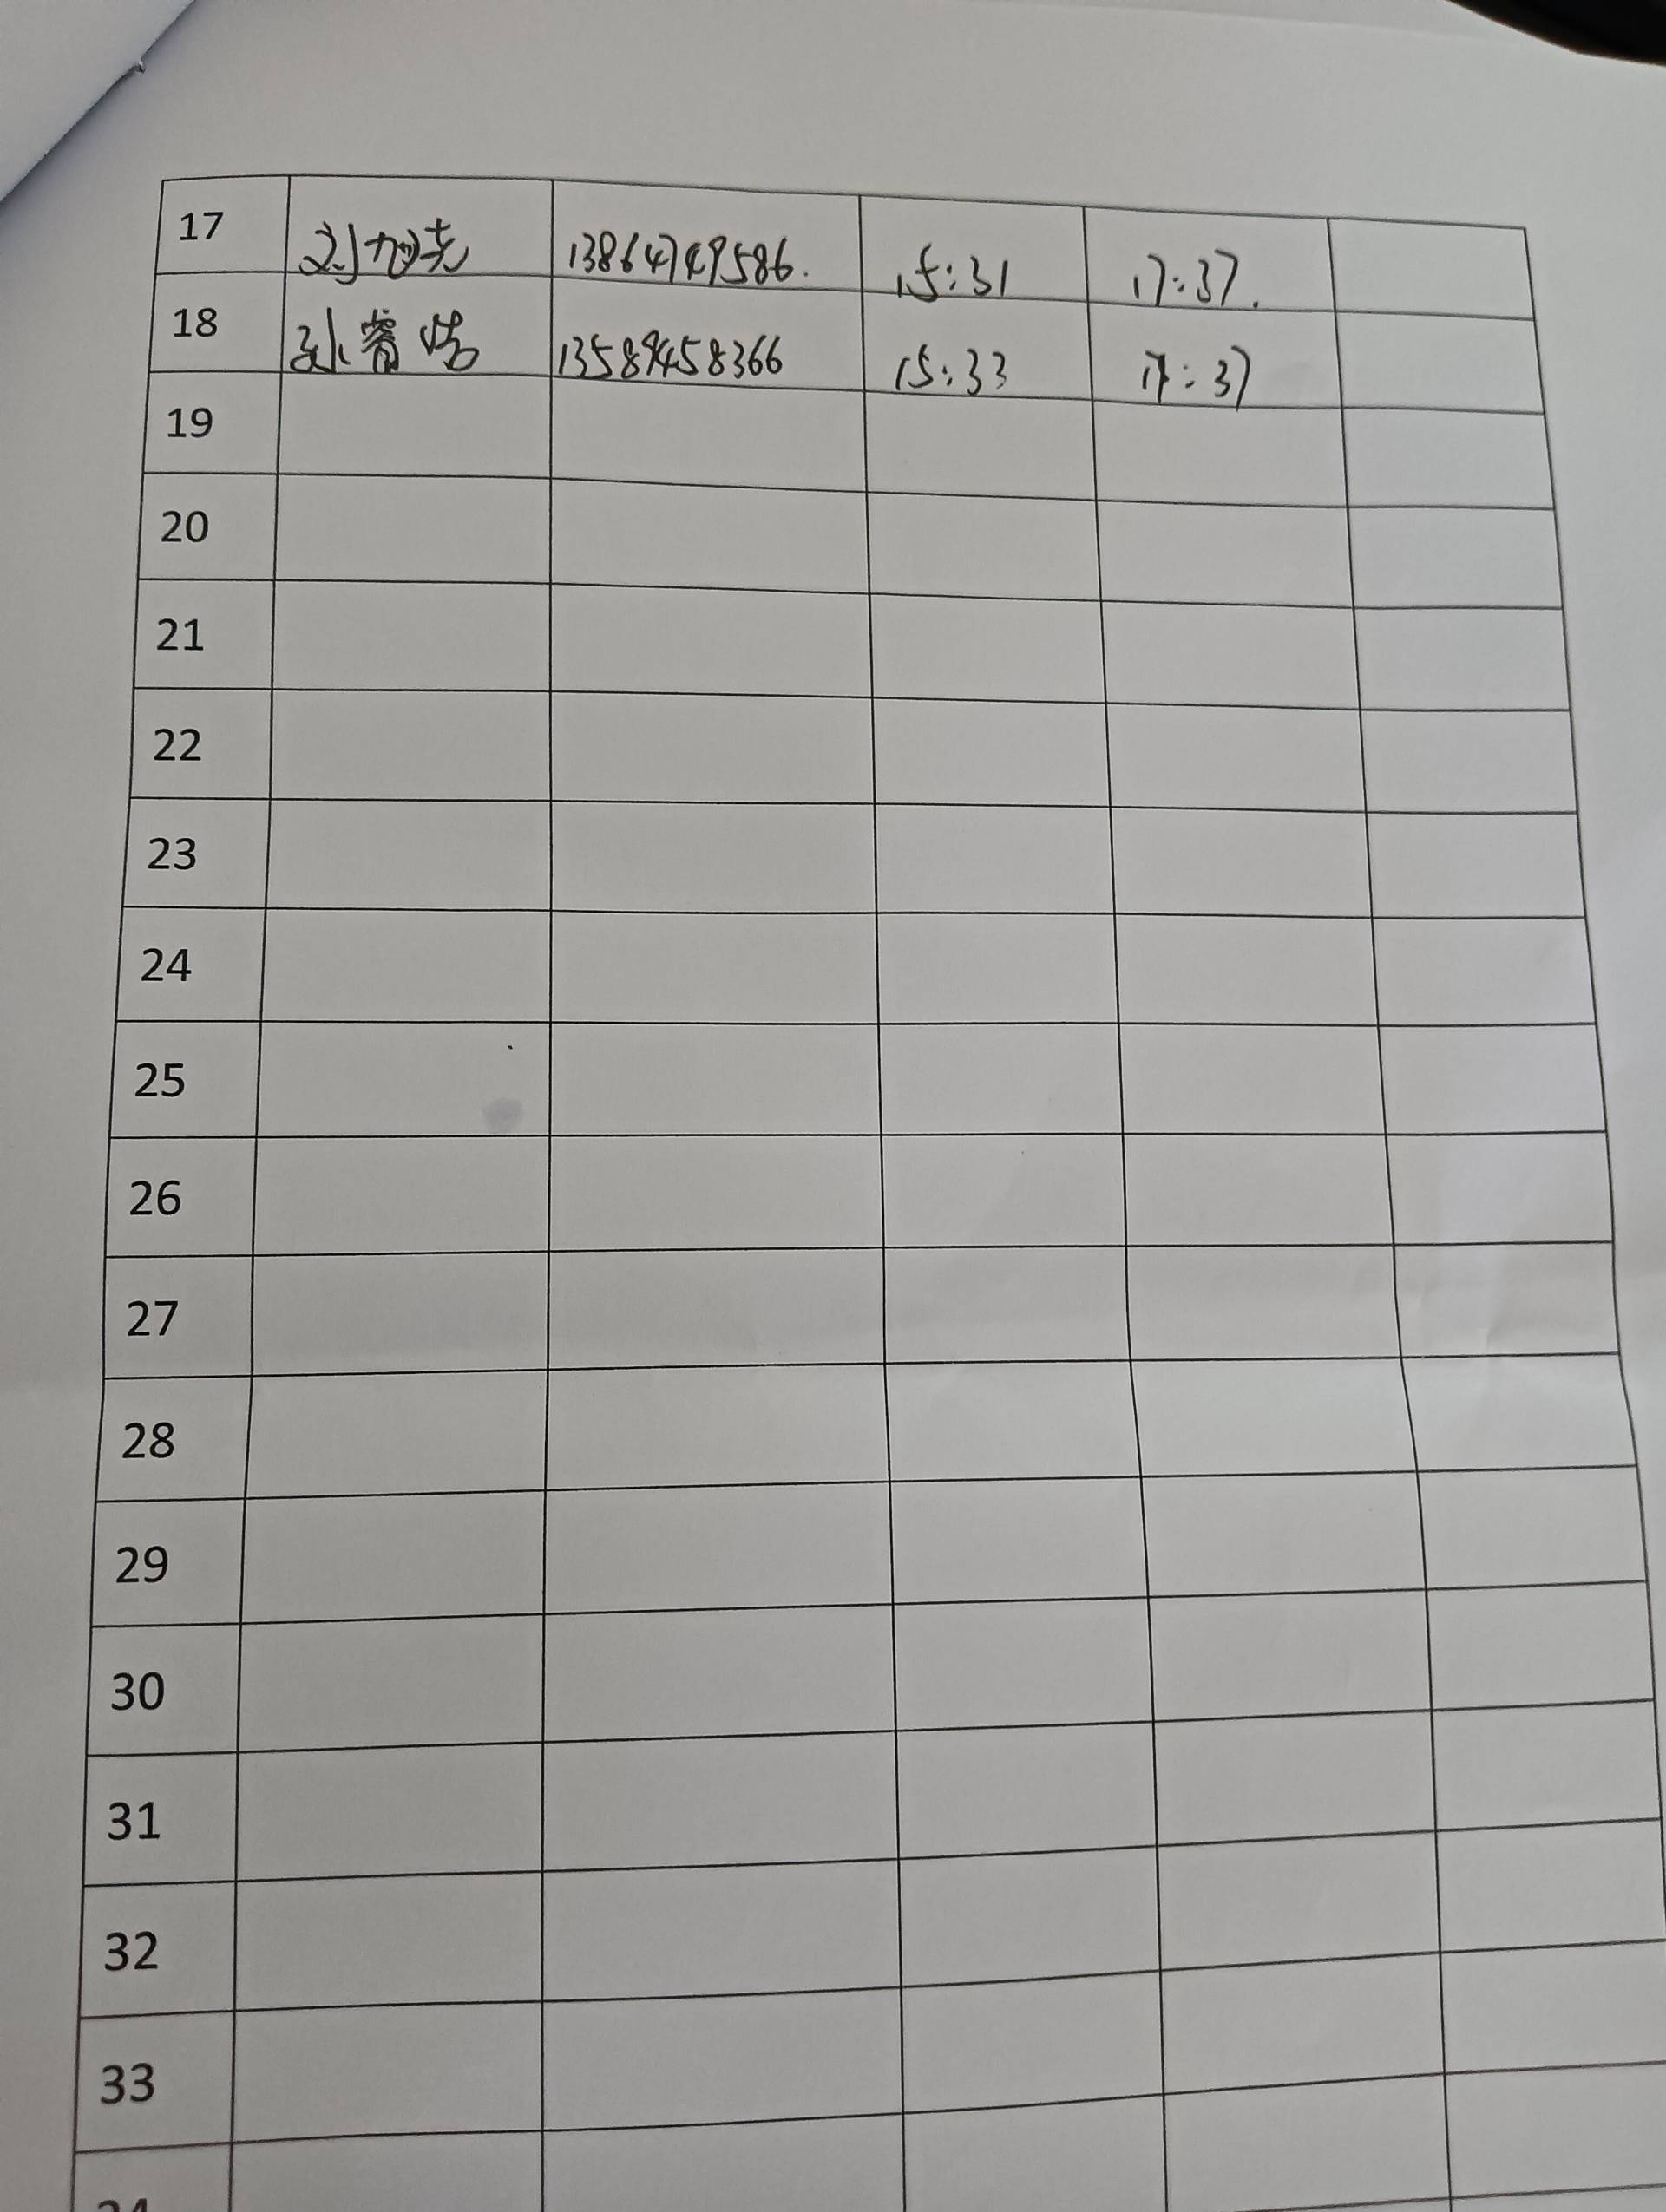 17 刘旭尧 13864749586. 15:31 17:37.
18 孙睿皓 13589458366 15:33 17:37
19
20
21
22
23
24
25
26
27
28
29
30
31
32
33